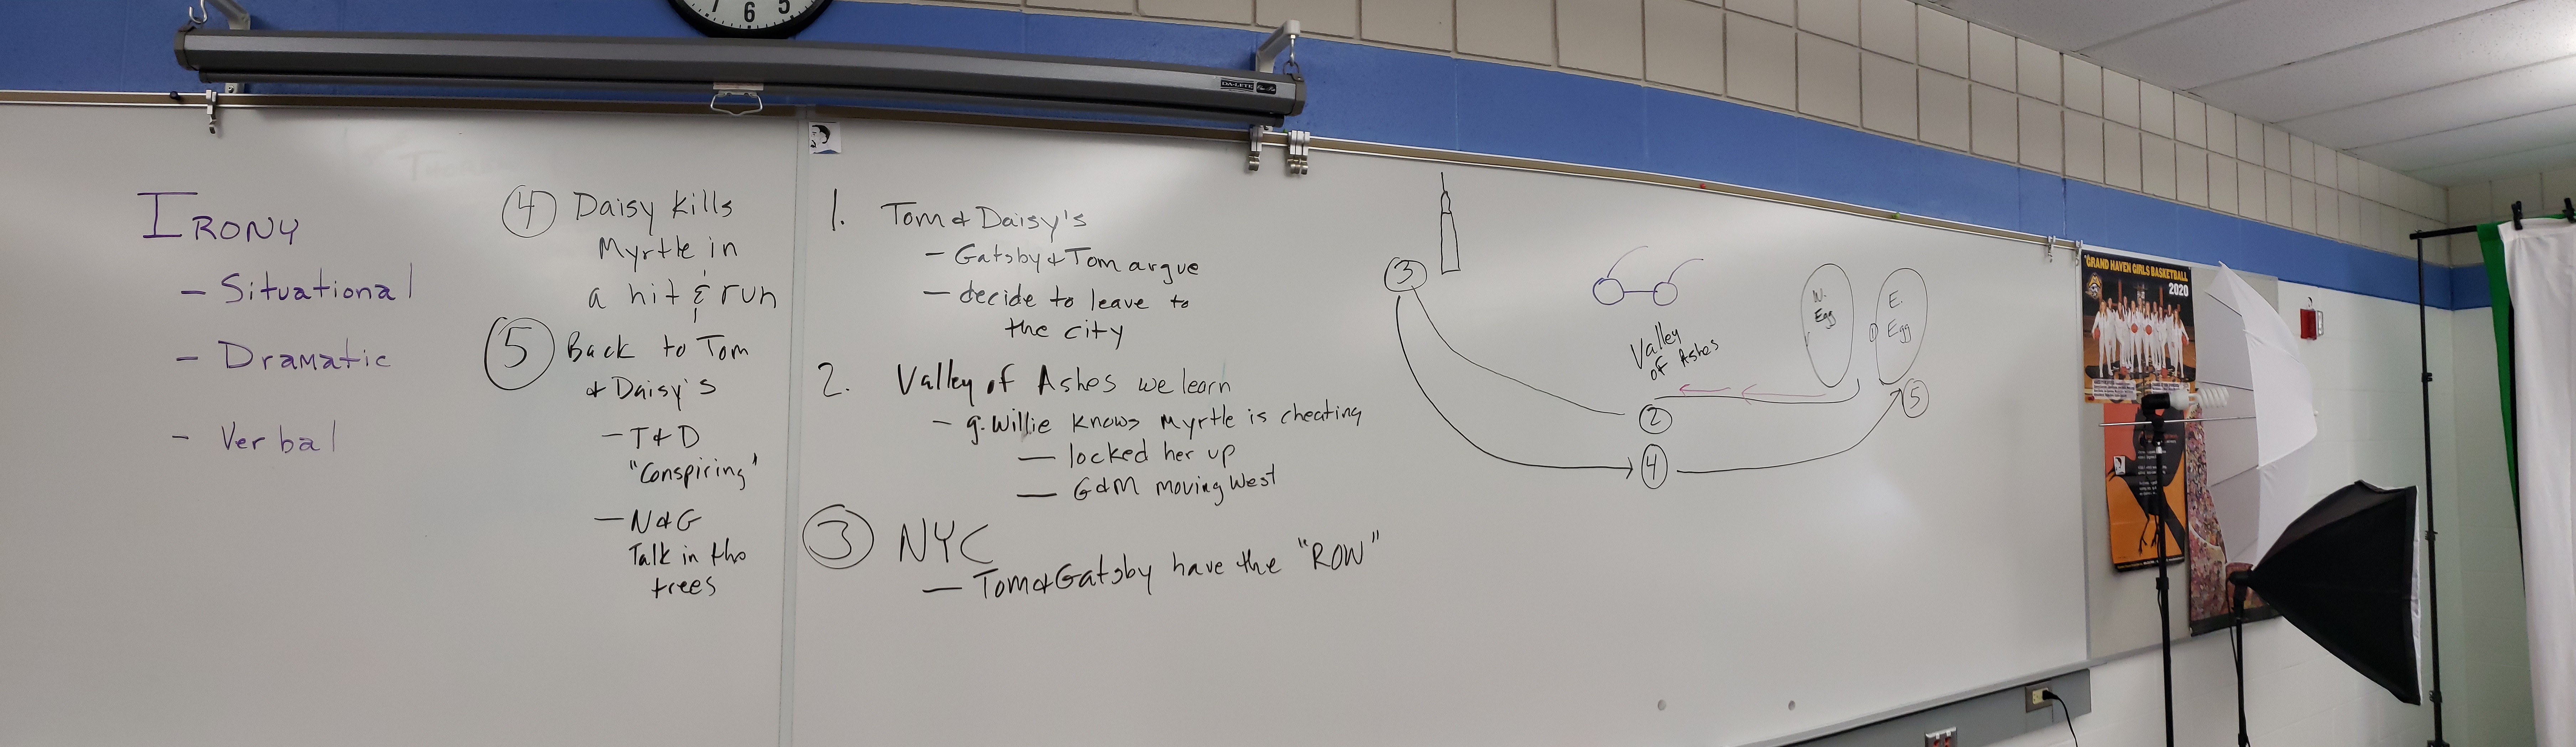 7 6 5
DA-LITE
IRONY
- Situational
- Dramatic
- Verbal
④ Daisy kills
Myrtle in
a hit & run
⑤ Back to Tom
& Daisy's
- T & D
"Conspiring"
- N & G
Talk in the
trees
1. Tom & Daisy's
- Gatsby & Tom argue
- decide to leave to
the city
2. Valley of Ashes we learn
- g. Willie knows Myrtle is cheating
- locked her up
- G & M moving West
③ NYC
- Tom & Gatsby have the "ROW"
③
Valley
of Ashes
②
④
W.
Egg
①
E.
Egg
⑤
GRAND HAVEN GIRLS BASKETBALL
2020